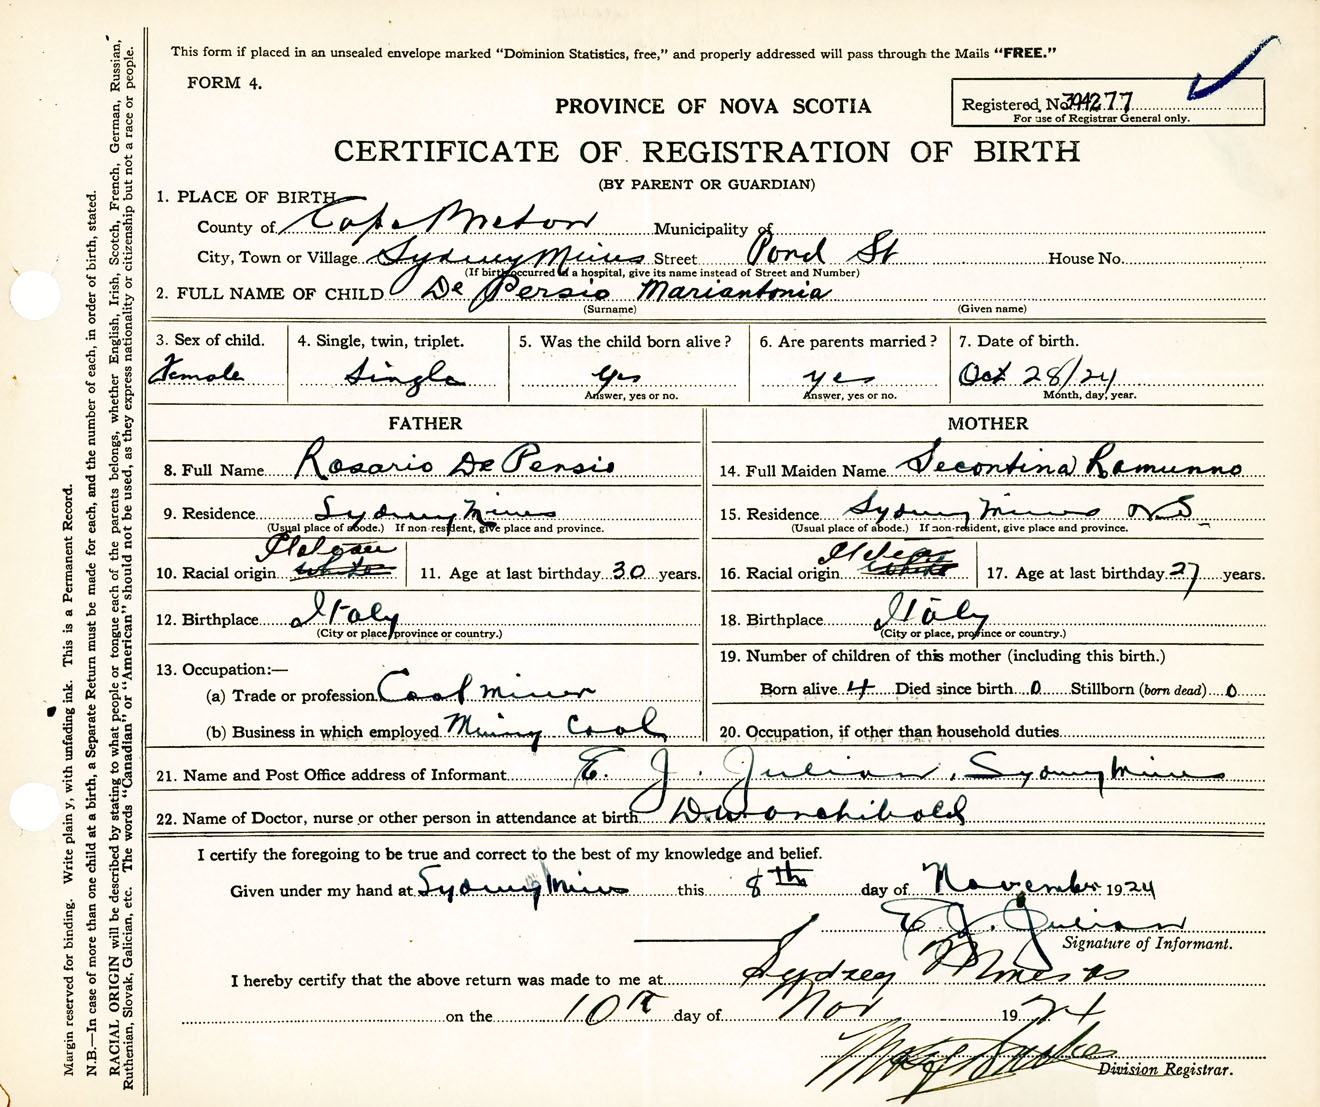 This form if placed in an unsealed envelope marked "Dominion Statistics, free," and properly addressed will pass through the Mails "FREE."
FORM 4.
PROVINCE OF NOVA SCOTIA
Registered, No. 394277
For use of Registrar General only.
CERTIFICATE OF REGISTRATION OF BIRTH
(BY PARENT OR GUARDIAN)
1. PLACE OF BIRTH
County of Cape Breton Municipality of
City, Town or Village Sydney Mines Street Pond St House No.
(If birth occurred in a hospital, give its name instead of Street and Number)
2. FULL NAME OF CHILD De Persio Mariantonia
(Surname) (Given name)
3. Sex of child. 4. Single, twin, triplet. 5. Was the child born alive? 6. Are parents married? 7. Date of birth.
Female Single Yes yes Oct 28/24
Answer, yes or no. Answer, yes or no. Month, day, year.
FATHER MOTHER
8. Full Name Rosario De Persio 14. Full Maiden Name Secontina Ramunno
9. Residence Sydney Mines 15. Residence Sydney Mines NS
(Usual place of abode.) If non-resident, give place and province. (Usual place of abode.) If non-resident, give place and province.
10. Racial origin white 11. Age at last birthday 30 years. 16. Racial origin white 17. Age at last birthday 27 years.
12. Birthplace Italy 18. Birthplace Italy
(City or place, province or country.) (City or place, province or country.)
13. Occupation:— 19. Number of children of this mother (including this birth.)
(a) Trade or profession Coal miner Born alive 4 Died since birth 0 Stillborn (born dead) 0
(b) Business in which employed Mining Coal 20. Occupation, if other than household duties
21. Name and Post Office address of Informant E. J. Julian, Sydney Mines
22. Name of Doctor, nurse or other person in attendance at birth D. W. Archibald
I certify the foregoing to be true and correct to the best of my knowledge and belief.
Given under my hand at Sydney Mines this 8th day of November 1924
E. J. Julian
Signature of Informant.
I hereby certify that the above return was made to me at Sydney Mines NS
on the 10th day of Nov 1924
Division Registrar.
Margin reserved for binding. Write plain y, with unfading ink. This is a Permanent Record.
N.B.—In case of more than one child at a birth, a Separate Return must be made for each, and the number of each, in order of birth, stated.
RACIAL ORIGIN will be described by stating to what people or tongue each of the parents belongs, whether English, Irish, Scotch, French, German, Russian,
Ruthenian, Slovak, Galician, etc. The words "Canadian" or "American" should not be used, as they express nationality or citizenship but not a race or people.